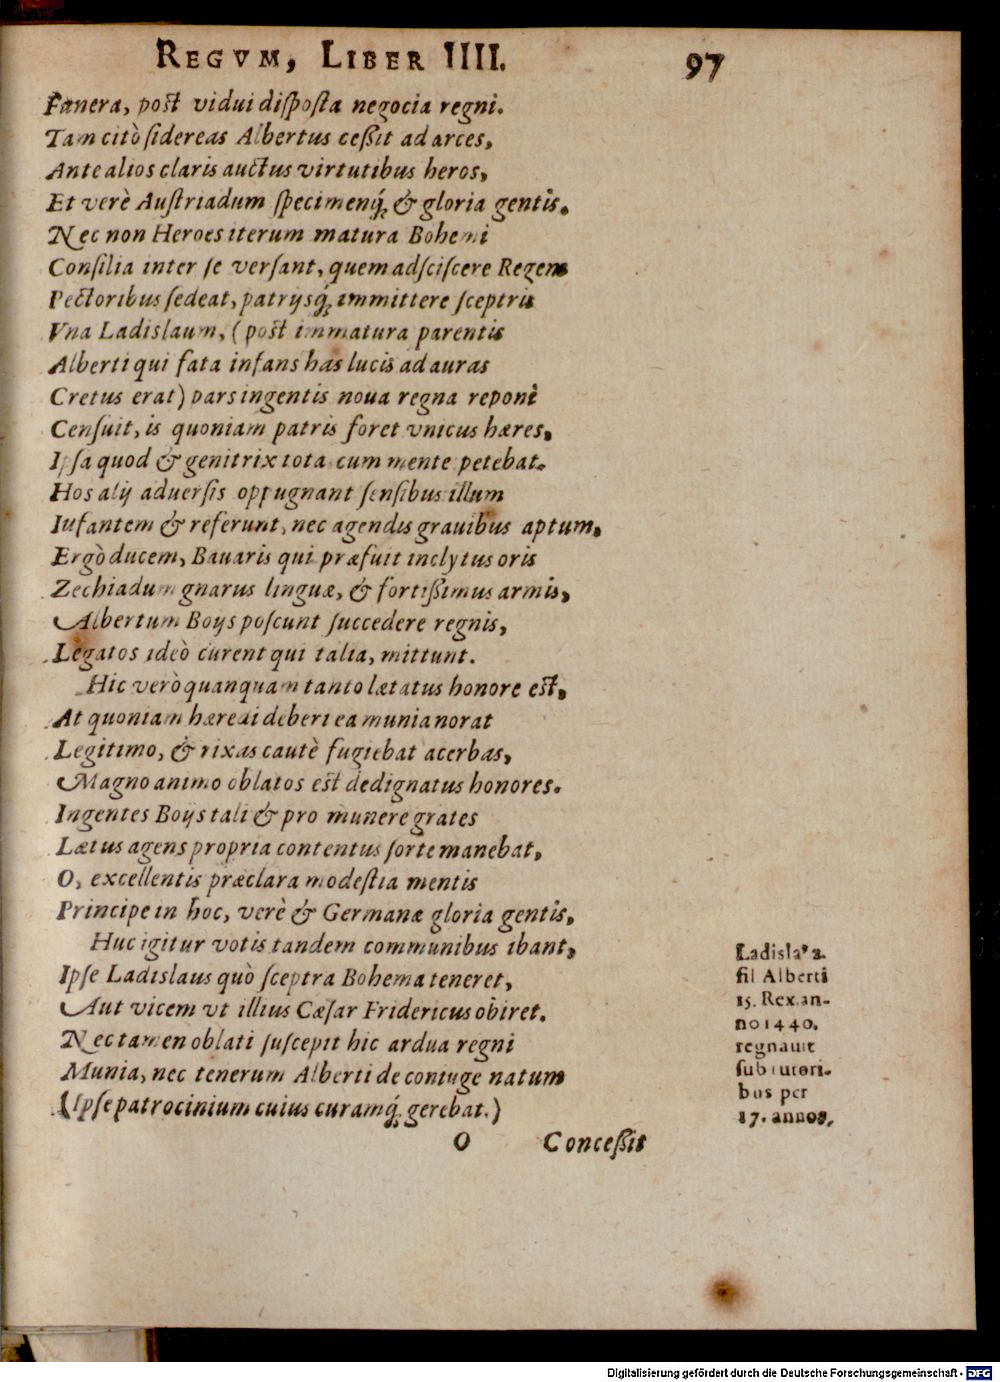 REGVM, LIBER IIII. 97
Fanera, post vidui disposta negocia regni.
Tam citò sidereas Albertus ceßit ad arces,
Ante alios claris auctus virtutibus heros,
Et verè Austriadum specimenq́; & gloria gentis.
Nec non Heroes iterum matura Bohemi
Consilia inter se versant, quem adsciscere Regem
Pectoribus sedeat, patrijsq́; immittere sceptris
Vna Ladislaum, (post immatura parentis
Alberti qui fata infans has lucis ad auras
Cretus erat) pars ingentis noua regna reponi
Censuit, is quoniam patris foret vnicus hæres,
Ipsa quod & genitrix tota cum mente petebat.
Hos alij aduersis oppugnant sensibus illum
Iufantem & referunt, nec agendis grauibus aptum.
Ergò ducem, Bauaris qui præfuit inclytus oris
Zechiadum gnarus linguæ, & fortißimus armis,
Albertum Boijs poscunt succedere regnis,
Legatos ideò curent qui talia, mittunt.
Hic verò quanquam tanto lætatus honore est,
At quoniam hæredi deberi ea munia norat
Legitimo, & rixas cautè fugiebat acerbas,
Magno animo oblatos est dedignatus honores.
Ingentes Boijs tali & pro munere grates
Lætus agens propria contentus sorte manebat,
O, excellentis præclara modestia mentis
Principe in hoc, verè & Germanæ gloria gentis,
Huc igitur votis tandem communibus ibant,
Ipse Ladislaus quò sceptra Bohema teneret,
Aut vicem vt illius Cæsar Fridericus obiret.
Nec tamen oblati suscepit hic ardua regni
Munia, nec tenerum Alberti de coniuge natum
(Ipse patrocinium cuius curamq́; gerebat.)
O Conceßit
Ladisla⁹ 2.
fil Alberti
15. Rex. an-
no 1440.
regnauit
sub tutori-
bus per
17. annos,
Digitalisierung gefördert durch die Deutsche Forschungsgemeinschaft - DFG